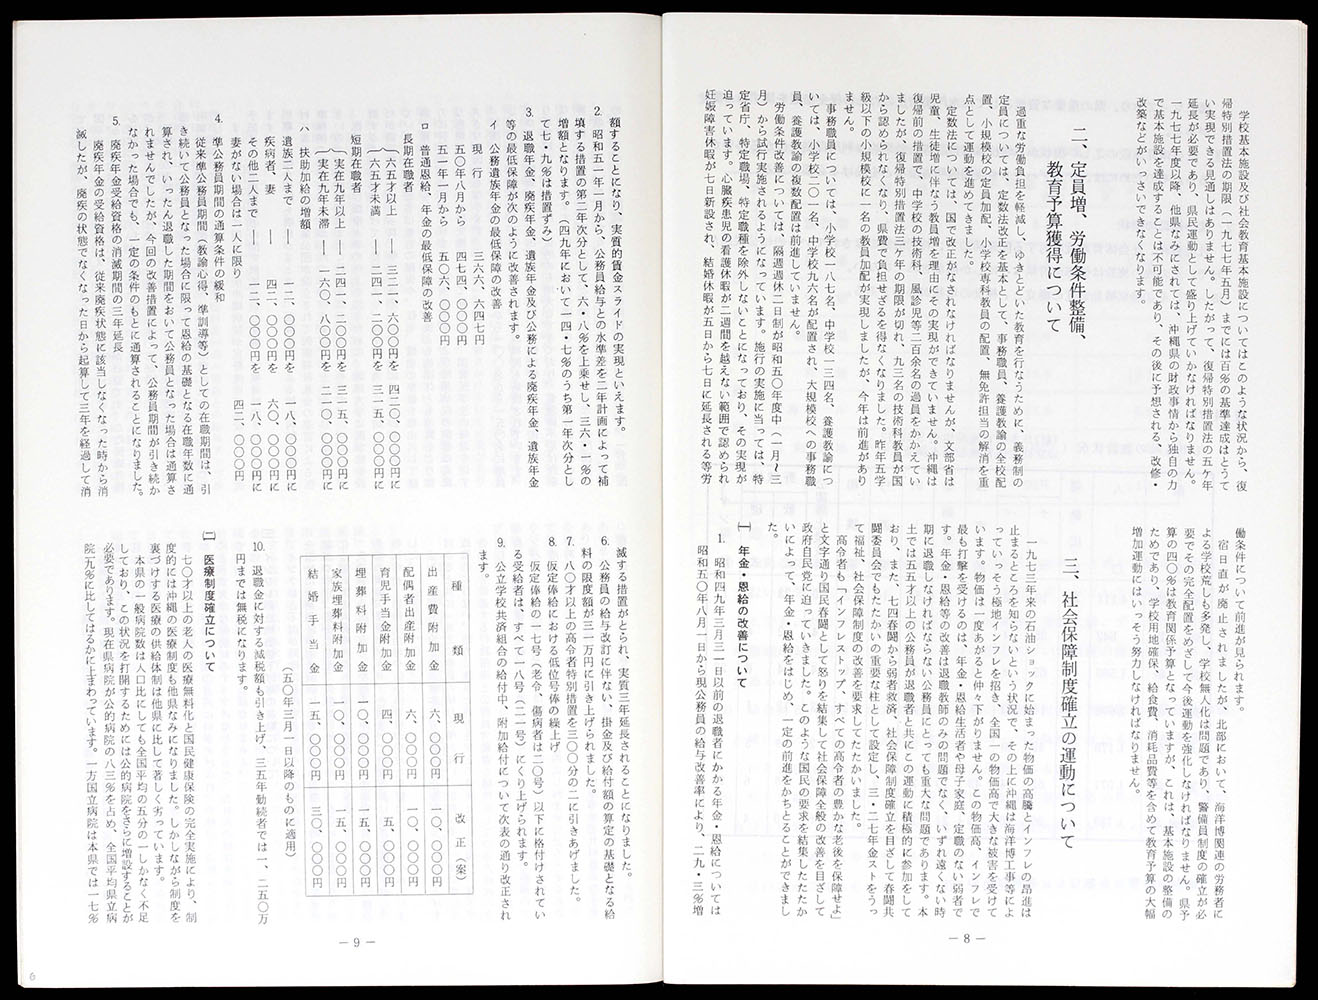 学校基本施設及び社会教育基本施設についてはこのような状況から、復
帰特別措置法の期限（一九七七年五月）までには百％の基準達成はとうて
い実現できる見通しはありません。したがって、復帰特別措置法の五ヶ年
延長が必要であり、県民運動として盛り上げていかなければなりません。
一九七七年度以降、他県なみにされては、沖縄県の財政事情から独自の力
で基本施設を達成することは不可能であり、その後に予想される、改修・
改築などがいっさいできなくなります。
二、定員増、労働条件整備、
教育予算獲得について
過重な労働負担を軽減し、ゆきとどいた教育を行なうために、義務制の
定員については、定数法改正を基本として、事務職員、養護教諭の全校配
置、小規模校の定員加配、小学校専科教員の配置、無免許担当の解消を重
点として運動を進めてきました。
定数法については、国で改正がなされなければなりませんが、文部省は
児童、生徒増に伴なう教員増を理由にその実現ができていません。沖縄は
復帰前の措置で、中学校の技術科、風診児等二百余名の過員をかかえてい
ましたが、復帰特別措置法三ヶ年の期限が切れ、九三名の技術科教員が国
から認められなくなり、県費で負担せざるを得なくなりました。昨年五学
級以下の小規模校に一名の教員加配が実現しましたが、今年は前進があり
ません。
事務職員については、小学校一八七名、中学校一三四名、養護教諭につ
いては、小学校二〇一名、中学校九六名が配置され、大規模校への事務職
員、養護教諭の複数配置は前進していません。
労働条件改善については、隔週週休二日制が昭和五〇年度中（一月〜三
月）から試行実施されるようになっています。施行の実施に当っては、特
定省庁、特定職場、特定職種を除外しないことになっており、その実現が
迫っています。心臓疾患児の看護休暇が二週間を越えない範囲で認められ
妊娠障害休暇が七日新設され、結婚休暇が五日から七日に延長される等労
働条件について前進が見られます。
宿日直が廃止されましたが、北部において、海洋博関連の労務者に
よる学校荒しも多発し、学校無人化は問題であり、警備員制度の確立が必
要でその完全配置をめざして今後運動を強化しなければなりません。県予
算の四〇％は教育関係予算となっていますが、これは、基本施設の整備の
ためであり、学校用地確保、給食費、消耗品費等を含めて教育予算の大幅
増加運動にはいっそう努力しなければなりません。
三、社会保障制度確立の運動について
一九七三年来の石油ショックに始まった物価の高騰とインフレの昂進は
止まるところを知らないという状況で、その上に沖縄は海洋博工事等によ
っていっそう極地インフレを招き、全国一の物価高で大きな被害を受けて
います。物価は一度あがると仲々下がりません。この物価高、インフレで
最も打撃を受けるのは、年金・恩給生活者や母子家庭、定職のない弱者で
す。年金・恩給等の改善は退職教師のみの問題でなく、いずれ遠くない時
期に退職しなければならない公務員にとっても重大な問題であります。本
土では五五才以上の公務員が退職者と共にこの運動に積極的に参加をして
おり、また、七四春闘から弱者救済、社会保障制度確立を目ざして春闘共
闘委員会でもたたかいの重要な柱として設定し、三・二七年金ストをうっ
て福祉、社会保障制度の改善を要求してたたかいました。
高令者も「インフレストップ、すべての高令者の豊かな老後を保障せよ」
と文字通り国民春闘として怒りを結集して社会保障全般の改善を目ざして
政府自民党に迫っていきました。このような国民の要求を結集したたたか
いによって、年金・恩給をはじめ、一定の前進をかちとることができまし
た。
㈠　年金・恩給の改善について
1.　昭和四九年三月三一日以前の退職者にかかる年金・恩給については
昭和五〇年八月一日から現公務員の給与改善率により、二九・三％増
― 8 ―
額することになり、実質的賃金スライドの実現といえます。
2.　昭和五一年一月から、公務員給与との水準差を二年計画によって補
填する措置の第二年次分として、六・八％を上乗せし、三六・一％の
増額となります。（四九年において一四・七％のうち第一年次分とし
て七・九％は措置ずみ）
3.　退職年金、廃疾年金、遺族年金及び公務による廃疾年金、遺族年金
等の最低保障が次のように改善されます。
イ　公務遺族年金の最低保障の改善
現　行　三六六、六四七円
五〇年八月から　四七四、〇〇〇円
五一年一月から　五〇六、〇〇〇円
ロ　普通恩給、年金の最低保障の改善
長期在職者
（六五才以上 ―― 三二一、六〇〇円を　四二〇、〇〇〇円に
（六五才未満 ―― 二四一、二〇〇円を　三一五、〇〇〇円に
短期在職者
（実在九年以上 ― 二四一、二〇〇円を　三一五、〇〇〇円に
（実在九年未滞 ― 一六〇、八〇〇円を　二一〇、〇〇〇円に
ハ　扶助加給の増額
遺族二人まで ―― 一二、〇〇〇円を　一八、〇〇〇円に
疾病者、妻 ―― 四二、〇〇〇円を　六〇、〇〇〇円に
その他二人まで ―― 一二、〇〇〇円を　一八、〇〇〇円に
妻がない場合は一人に限り　四二、〇〇〇円
4.　準公務員期間の通算条件の緩和
従来準公務員期間（教諭心得、準訓導等）としての在職期間は、引
き続いて公務員となった場合に限って恩給の基礎となる在職年数に通
算され、いったん退職した期間をおいて公務員となった場合は通算さ
れませんでしたが、今回の改善措置によって、公務員期間が引き続か
なかった場合でも、一定の条件のもとに通算されることになりました。
5.　廃疾年金受給資格の消滅期間の三年延長
廃疾年金の受給資格は、従来廃疾状態に該当しなくなった時から消
滅したが、廃疾の状態でなくなった日から起算して三年を経過して消
滅する措置がとられ、実質三年延長されることになりました。
6.　公務員の給与改訂に伴ない、掛金及び給付額の算定の基礎となる給
料の限度額が三一万円に引き上げられました。
7.　八〇才以上の高令者特別措置を三〇〇分の二に引きあげました。
8.　仮定俸給における低位号俸の繰上げ
仮定俸給の一七号（老令、傷病者は二〇号）以下に格付けされてい
る受給者は、すべて一八号（二一号）にくり上げられます。
9.　公立学校共済組合の給付中、附加給付について次表の通り改正され
ます。
種　類　現　行　改　正（案）
出産費附加金　六、〇〇〇円　一〇、〇〇〇円
配偶者出産附加金　六、〇〇〇円　一〇、〇〇〇円
育児手当金附加金　四、〇〇〇円　五、〇〇〇円
埋葬料附加金　一〇、〇〇〇円　一五、〇〇〇円
家族埋葬料附加金　一〇、〇〇〇円　一五、〇〇〇円
結婚手当金　一五、〇〇〇円　三〇、〇〇〇円
（五〇年三月一日以降のものに適用）
10.　退職金に対する減税額も引き上げ、三五年勤続者では一、二五〇万
円までは無税になります。
㈡　医療制度確立について
七〇才以上の老人の医療無料化と国民健康保険の完全実施により、制
度的には沖縄の医療制度も他県なみになりました。しかしながら制度を
裏づけする医療の供給体制は他県に比して著しく劣っています。
本県の一般病院数は人口比にしても全国平均の五分の一しかなく不足
しており、この状況を打開するためには公的病院をさらに増設することが
必要であります。現在県病院が公的病院の八三％を占め、全国平均県立病
院一九％に比してはるかに上まわっています。一方国立病院は本県では一七％
― 9 ―
6